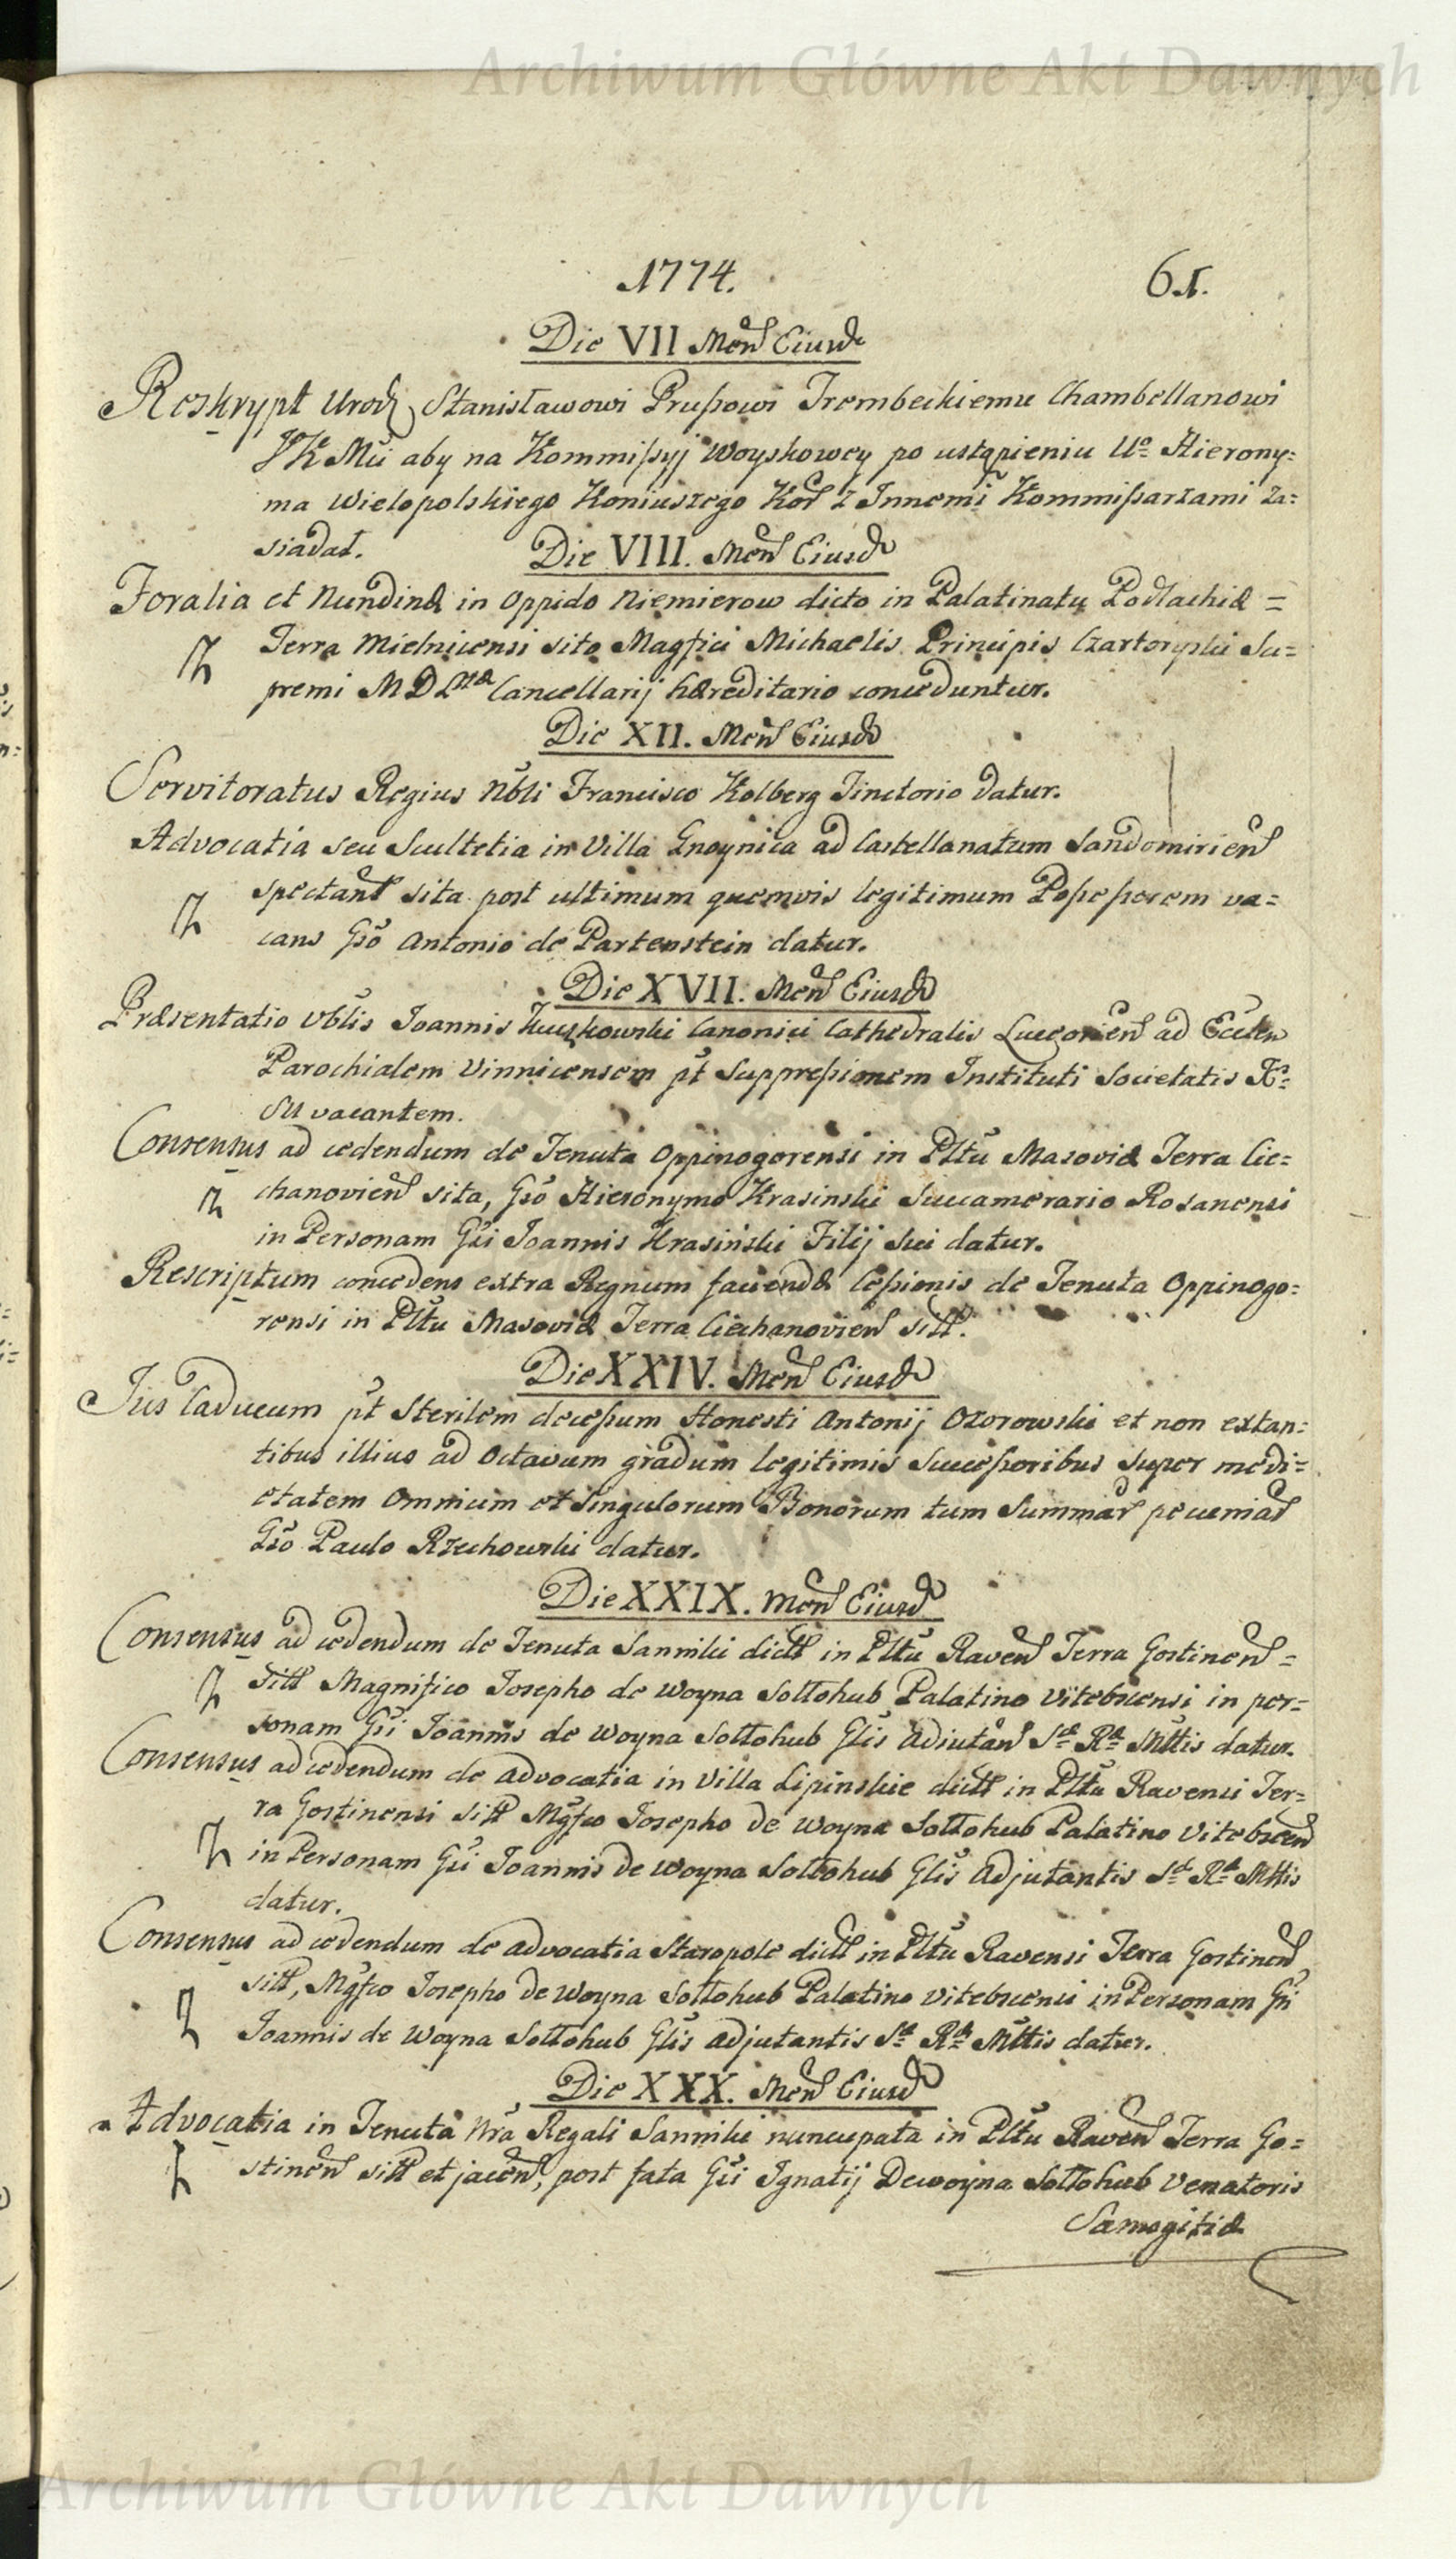 Archiwum Główne Akt Dawnych
1774.
61.
Die VII Men̄ Eiusd
Reskrypt Urodz Stanisławowi Prußowi Trembeckiemu Chambellanowi
JKMci aby na Kommißyj Woyskowey po ustąpieniu Uo Hierony=
ma Wielopolskiego Koniuszego Kor z Innemi Kommißarzami za=
siadał.
Die VIII. Men̄ Eiusd
Foralia et Nundinæ in Oppido Niemierow dicto in Palatinatu Podlachiæ =
Terra Mielnicensi sito Magfici Michaelis Principis Czartoryski Su=
premi M D Lttæ Cancellarij hæreditario conceduntur.
Die XII. Men̄ Eiusd
Servitoratus Regius Nbli Francisco Kolberg Tinctorio datur.
Advocatia seu Scultetia in Villa Gnoynica ad Castellanatum Sandomirien̄
spectant̄ sita post ultimum quemvis legitimum Poßeßorem va=
cans Gso Antonio de Partenstein datur.
Die XVII. Men̄ Eiusd
Præsentatio Vblis Joannis Kuczkowski Canonici Cathedralis Luceorien̄ ad Eccłen
Parochialem Vinnicensem pt Suppreßionem Instituti Societatis Je=
su vacantem.
Consensus ad cedendum de Tenuta Oppinogorensi in Pltu Masoviæ Terra Cie=
chanovien̄ sita, Gso Hieronymo Krasinski Succamerario Rosanensi
in Personam Gsi Joannis Krasiński Filij sui datur.
Rescriptum concedens extra Regnum faciendæ Ceßionis de Tenuta Oppinogo=
rensi in Pltu Masoviæ Terra Ciechanovien̄ sitt.
Die XXIV. Men̄ Eiusd
Jus Caducum pt Sterilem deceßum Honesti Antonij Ozorowski et non extan=
tibus illius ad Octavum gradum legitimis Succeßoribus super medi=
etatem Omnium et Singulorum Bonorum tum Summar̄ pecuniar̄
Gso Paulo Rzechowski datur.
Die XXIX. Men̄ Eiusd
Consensus ad cedendum de Tenuta Sanniki dict in Pltu Raven̄ Terra Gostinen̄ =
sitt Magnifico Josepho de Woyna Sołłohub Palatino Vitebscensi in per=
sonam Gsi Joannis de Woyna Sołłohub Glis Adiutan̄ Sæ Ræ Mttis datur.
Consensus ad cedendum de Advocatia in Villa Lipinskie dict in Pltu Ravensi Ter=
ra Gostinensi sitt Mgfco Josepho de Woyna Sołłohub Palatino Vitebscen̄
in Personam Gsi Joannis de Woyna Sołłohub Glis Adjutantis Sæ Ræ Mttis
datur.
Consensus ad cedendum de Advocatia Staropole dict in Pltu Ravensi Terra Gostinen̄
sitt, Mgfco Josepho de Woyna Sołłohub Palatino Vitebscensi in Personam Gsi
Joannis de Woyna Sołłohub Glis Adjutantis Sæ Ræ Mttis datur.
Die XXX. Men̄ Eiusd
Advocatia in Tenuta Nra Regali Sanniki nuncupata in Pltu Raven̄ Terra Go=
stinen̄ sitt et jacen̄, post fata Gsi Ignatij Dewoyna Sołłohub Venatoris
Samogitiæ
Archiwum Główne Akt Dawnych